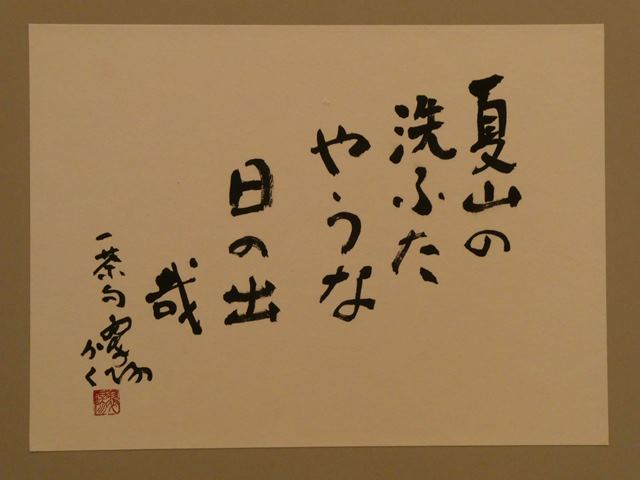 夏山の
洗ふた
やうな
日の出
哉
一茶句
かく